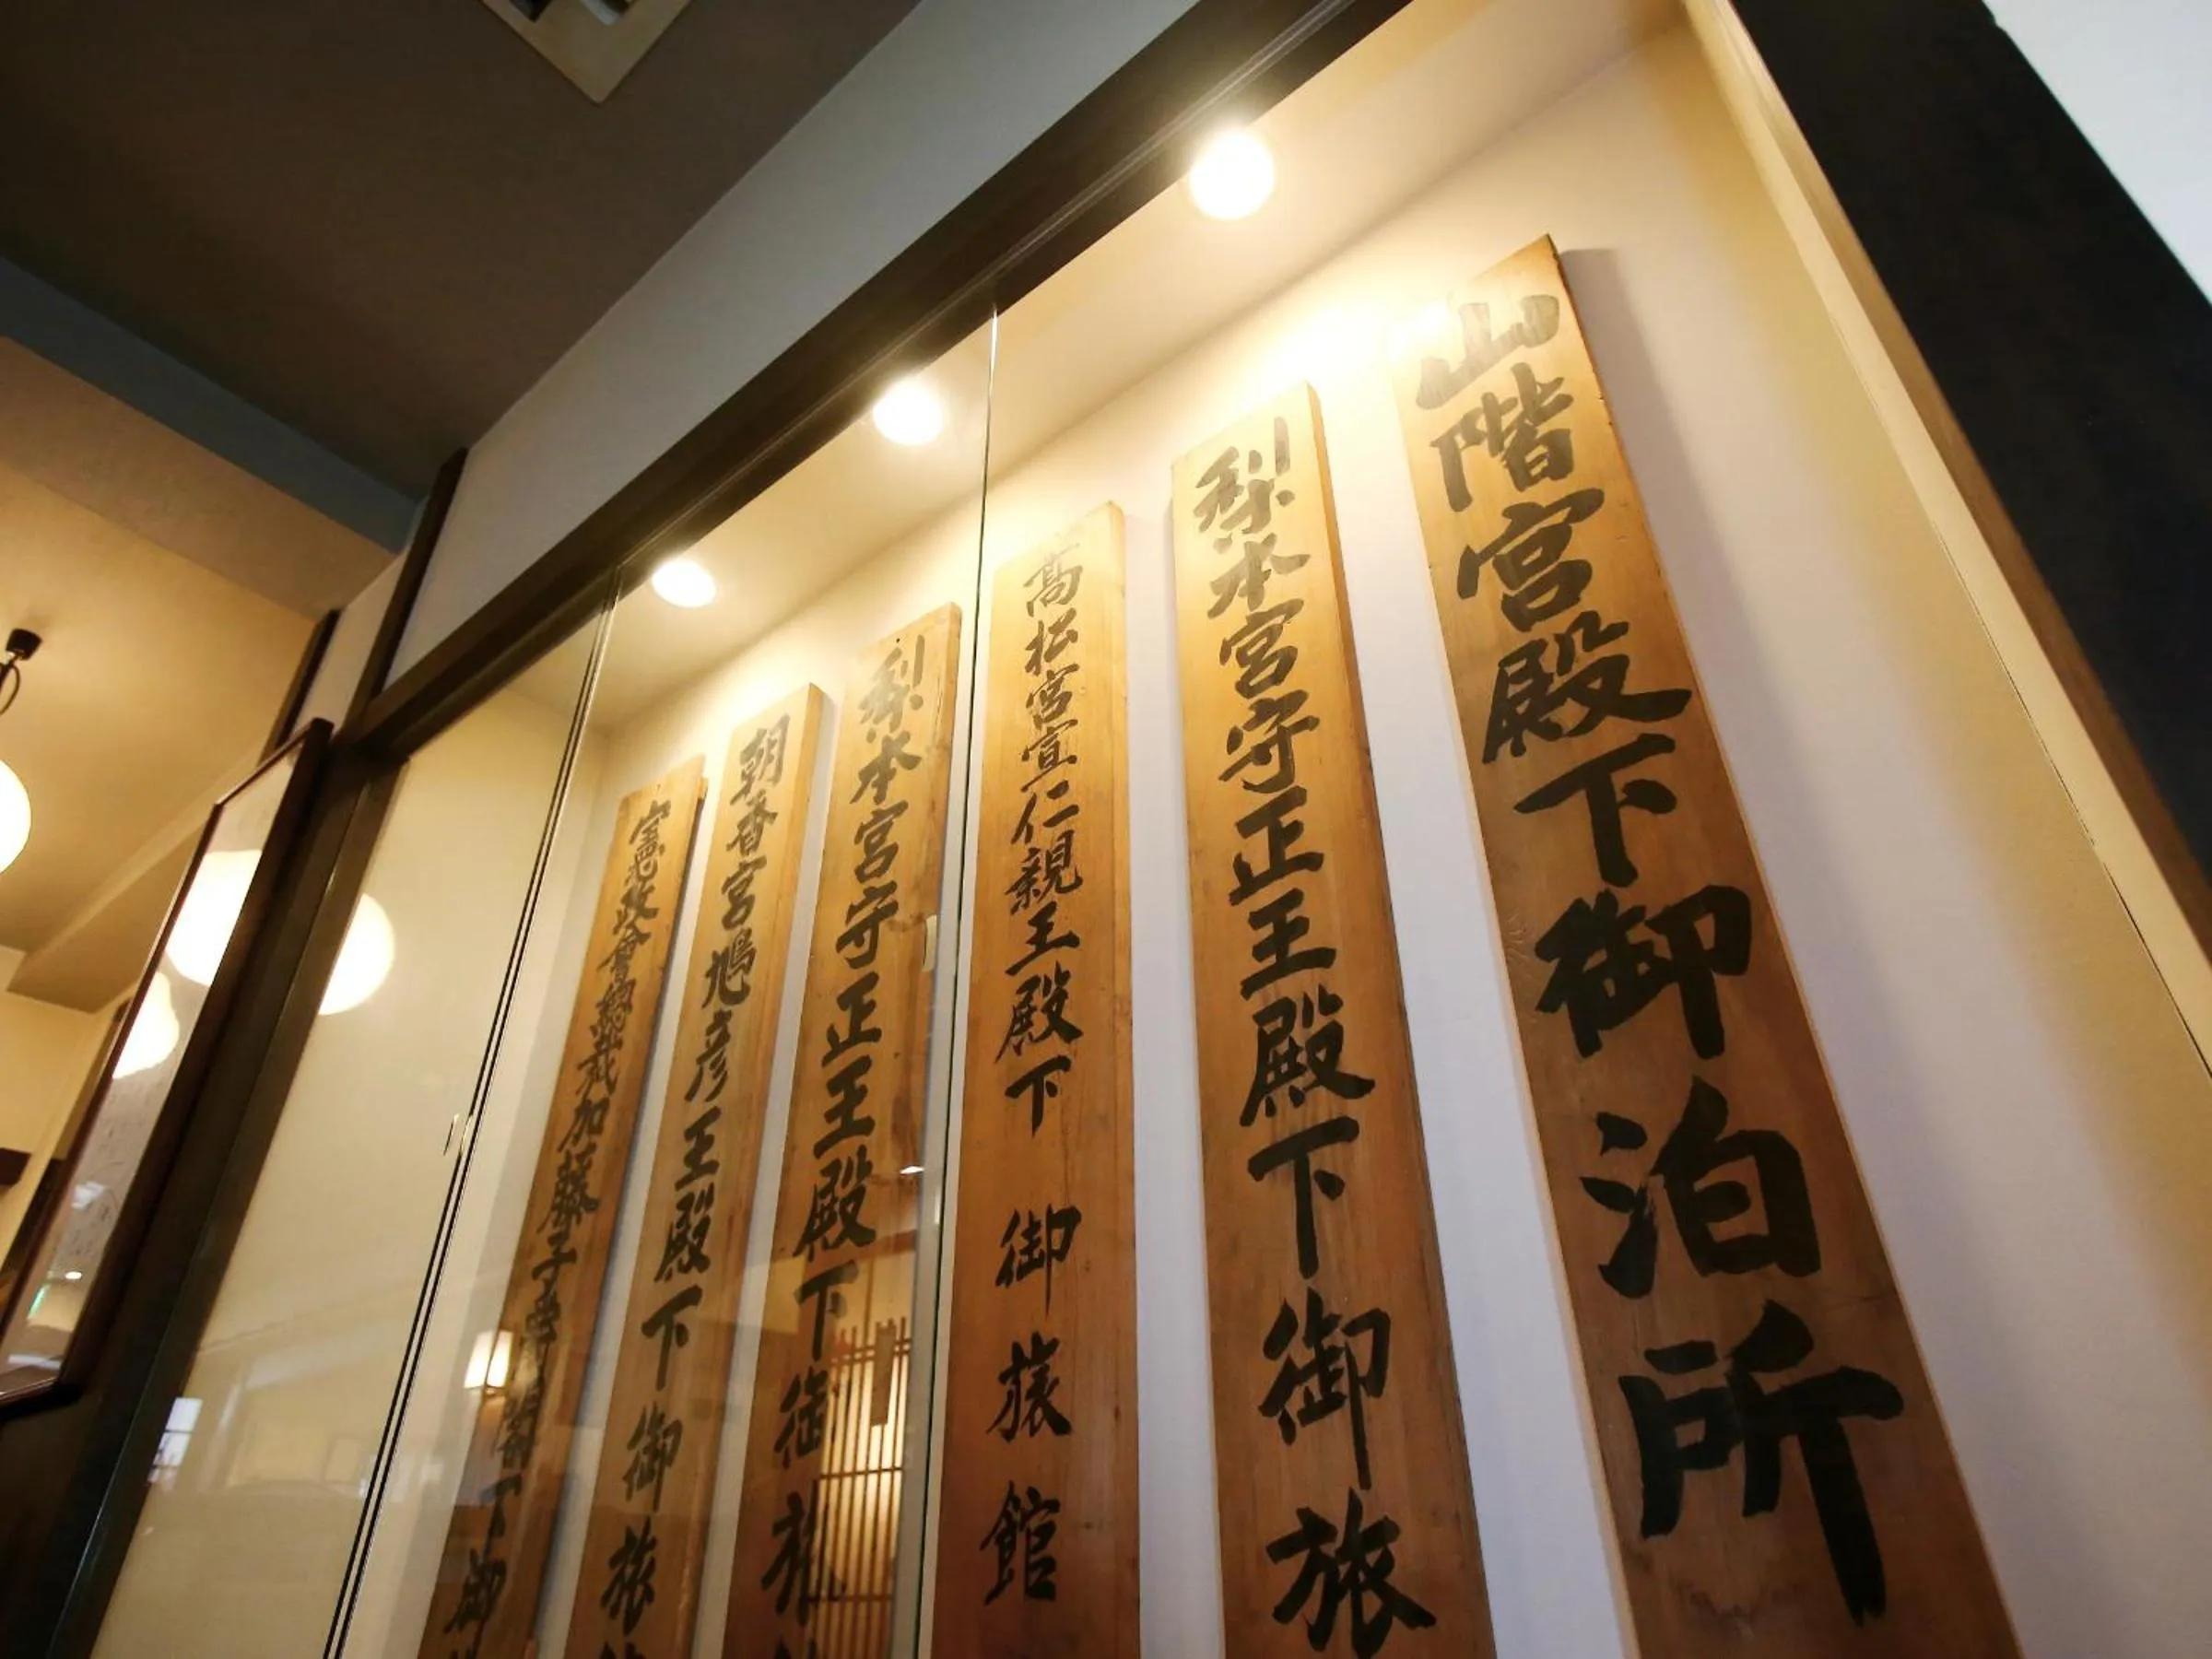 山階宮殿下御泊所
梨本宮守正王殿下御旅
高松宮宣仁親王殿下 御旅館
梨本宮守正王殿下御旅
朝香宮鳩彦王殿下御旅
憲政會総裁加藤子爵閣下御